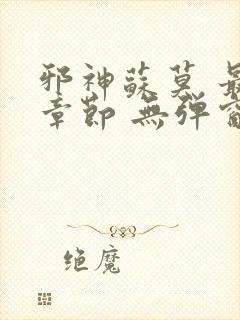 邪神蘇莫 最
章節 無弹窗
绝魔